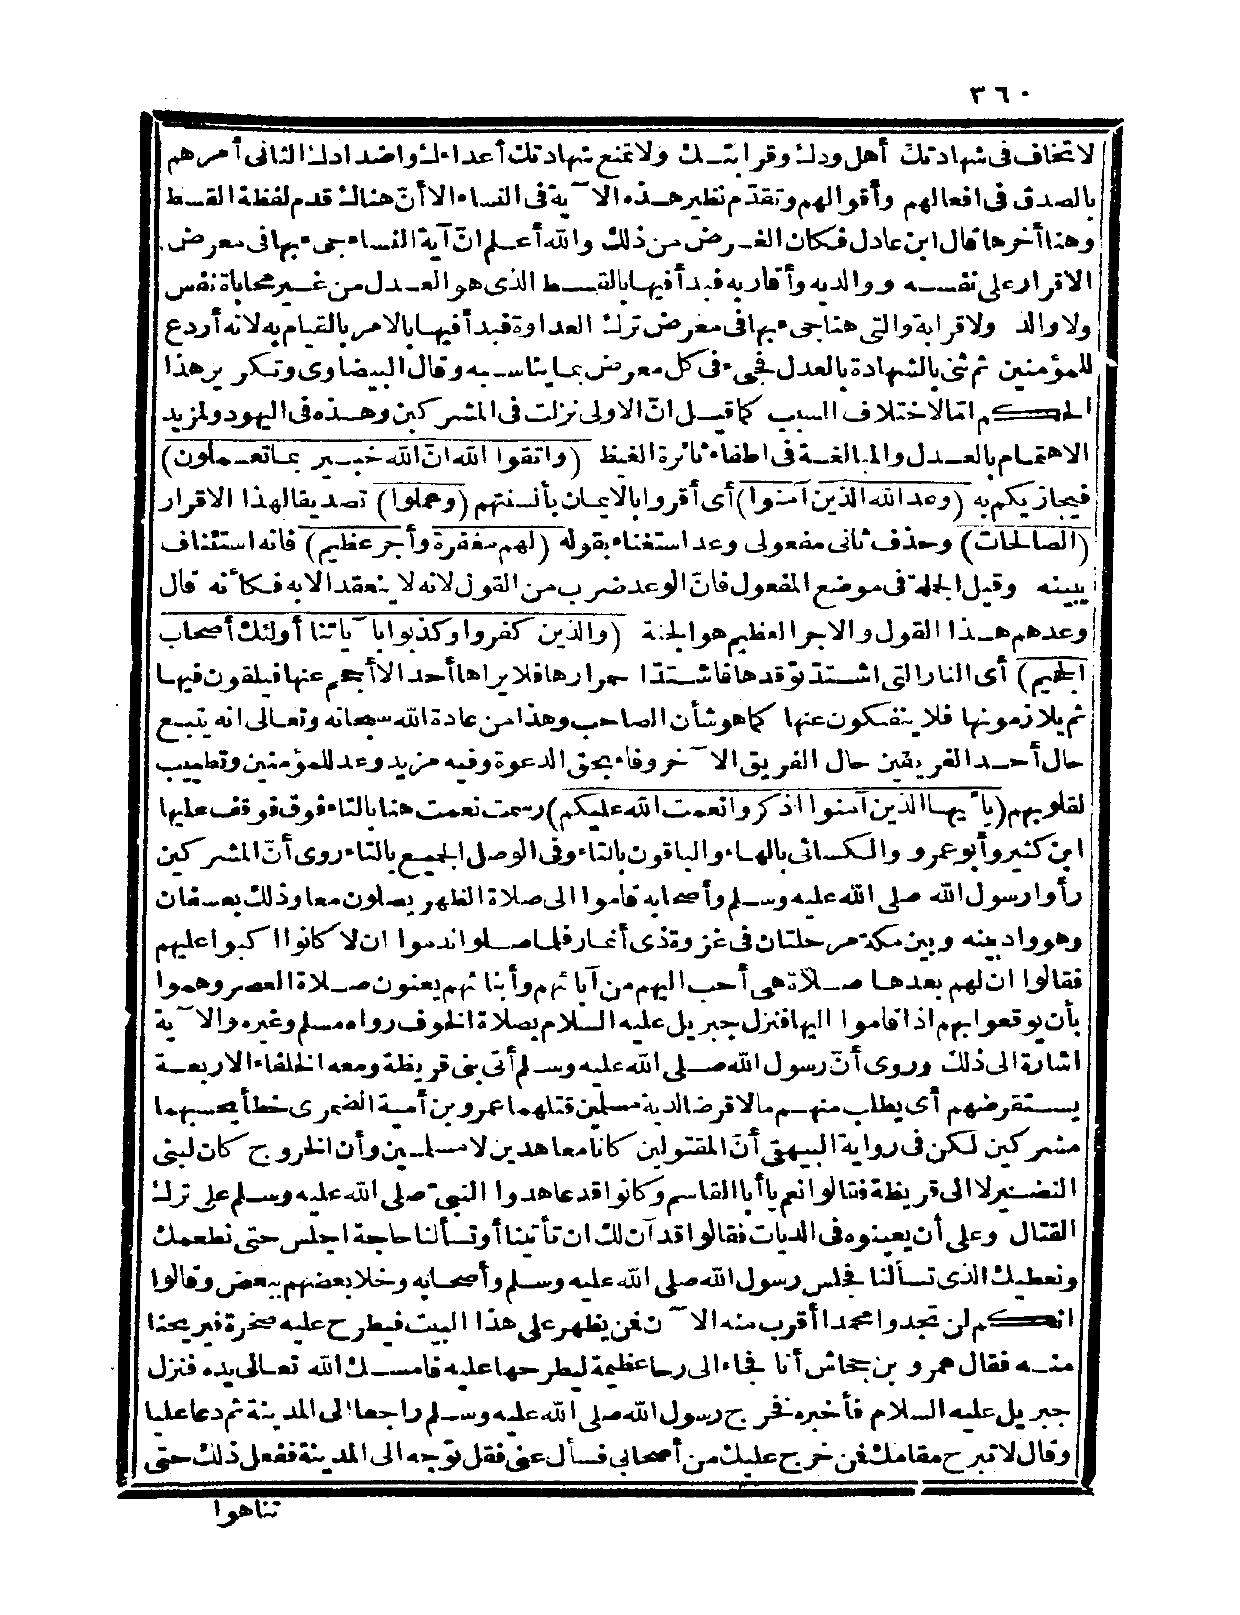 ٣٦٠
لا تخاف في شهادتك أهل ودك وقرابتك ولا تمنع شهادتك أعداءك وأضدادك الثاني أمرهم
بالصدق في افعالهم وأقوالهم وتقدّم نظير هذه الآية في النساء الا أنّ هناك قدم لفظة القسط
وهنا أخرها قال ابن عادل فكان الغرض من ذلك والله أعلم انّ آية النساء جىء بها في معرض
الاقرار على نفسه ووالديه وأقاربه فبدأ فيها بالقسط الذي هو العدل من غير محاباة نفس
ولا والد ولا قرابة والتي هنا جىء بها في معرض ترك العداوة فبدأ فيها بالامر بالقيام به لانه أردع
للمؤمنين ثم ثنى بالشهادة بالعدل فجىء في كل معرض بما يناسبه وقال البيضاوي وتكرير هذا
الحكم امّا لاختلاف السبب كما قيل انّ الاولى نزلت في المشركين وهذه في اليهود ولمزيد
الاهتمام بالعدل والمبالغة في اطفاء ثائرة الغيظ (واتقوا الله انّ الله خبير بما تعملون)
فيجازيكم به (وعد الله الذين آمنوا) أى أقروا بالايمان بألسنتهم (وعملوا) تصديقا لهذا الاقرار
(الصالحات) وحذف ثاني مفعولى وعد استغناء بقوله (لهم مغفرة وأجر عظيم) فانه استئناف
يبينه وقيل الجملة في موضع المفعول فانّ الوعد ضرب من القول لانه لا ينعقد الا به فكأنه قال
وعدهم هذا القول والاجر العظيم هو الجنة (والذين كفروا وكذبوا بآياتنا أولئك أصحاب
الجحيم) أى النار التي اشتدّ توقدها فاشتدّا حمرارها فلا يراها أحد الا أحجم عنها فيلقون فيها
ثم يلازمونها فلا ينفكون عنها كما هو شأن الصاحب وهذا من عادة الله سبحانه وتعالى انه يتبع
حال أحد الفريقين حال الفريق الآخر وفاء بحق الدعوة وفيه مزيد وعد للمؤمنين وتطييب
لقلوبهم (يا أيها الذين آمنوا اذكروا نعمت الله عليكم) رسمت نعمت هنا بالتاء فوقف عليها
ابن كثير وأبو عمرو والكسائى بالهاء والباقون بالتاء وفي الوصل الجميع بالتاء روى أنّ المشركين
رأوا رسول الله صلى الله عليه وسلم وأصحابه قاموا الى صلاة الظهر يصلون معا وذلك بعسفان
وهو واد بينه وبين مكة مرحلتان في غزوة ذى أنمار فلما صلوا ندموا ان لا كانوا اكبوا عليهم
فقالوا ان لهم بعدها صلاة هى أحب اليهم من آبائهم وأبنائهم يعنون صلاة العصر وهموا
بأن يوقعوا بهم اذا قاموا اليها فنزل جبريل عليه السلام بصلاة الخوف رواه مسلم وغيره والآية
اشارة الى ذلك وروى أنّ رسول الله صلى الله عليه وسلم أتى بنى قريظة ومعه الخلفاء الاربعة
يستقرضهم أى يطلب منهم مالا قرضا لدية مسلمين قتلهما عمرو بن أمية الضمرى خطأ يحسبهما
مشركين لكن في رواية البيهقي أنّ المقتولين كانا معاهدين لا مسلمين وأن الخروج كان لبنى
النضير لا الى قريظة فقالوا نعم يا أبا القاسم وكانوا قد عاهدوا النبيّ صلى الله عليه وسلم على ترك
القتال وعلى أن يعينوه في الديات فقالوا قد آن لك ان تأتينا أو تسألنا حاجة اجلس حتى نطعمك
ونعطيك الذى تسألنا فجلس رسول الله صلى الله عليه وسلم وأصحابه وخلا بعضهم ببعض وقالوا
انكم لن تجدوا محمدا أقرب منه الآن فمن يظهر على هذا البيت فيطرح عليه صخرة فيريحنا
منه فقال عمرو بن جحاش أنا فجاء الى رحا عظيمة ليطرحها عليه فامسك الله تعالى يده فنزل
جبريل عليه السلام فأخبره فخرج رسول الله صلى الله عليه وسلم راجعا الى المدينة ثم دعا عليا
وقال لا تبرح مقامك فمن خرج عليك من أصحابي فسأل عنى فقل توّجه الى المدينة ففعل ذلك حتى
تناهوا